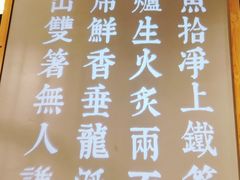 魚拾淨上鐵
爐生火炙兩
席鮮香垂龍涎
出雙箸無人